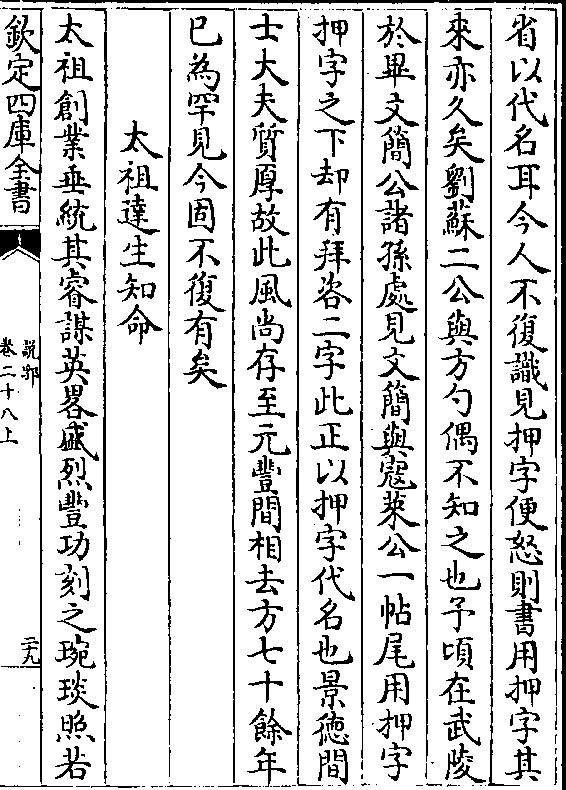 省以代名耳今人不復識見押字便怒則書用押字其
來亦久矣劉蘇二公與方勺偶不知之也予頃在武陵
於畢文簡公諸孫處見文簡與寇萊公一帖尾用押字
押字之下却有拜咨二字此正以押字代名也景德間
士大夫質厚故此風尚存至元豐間相去方七十餘年
已為罕見今固不復有矣
太祖達生知命
太祖創業垂統其睿謀英畧盛烈豐功刻之琬琰照若
欽定四庫全書
說郛
卷二十八上
二九